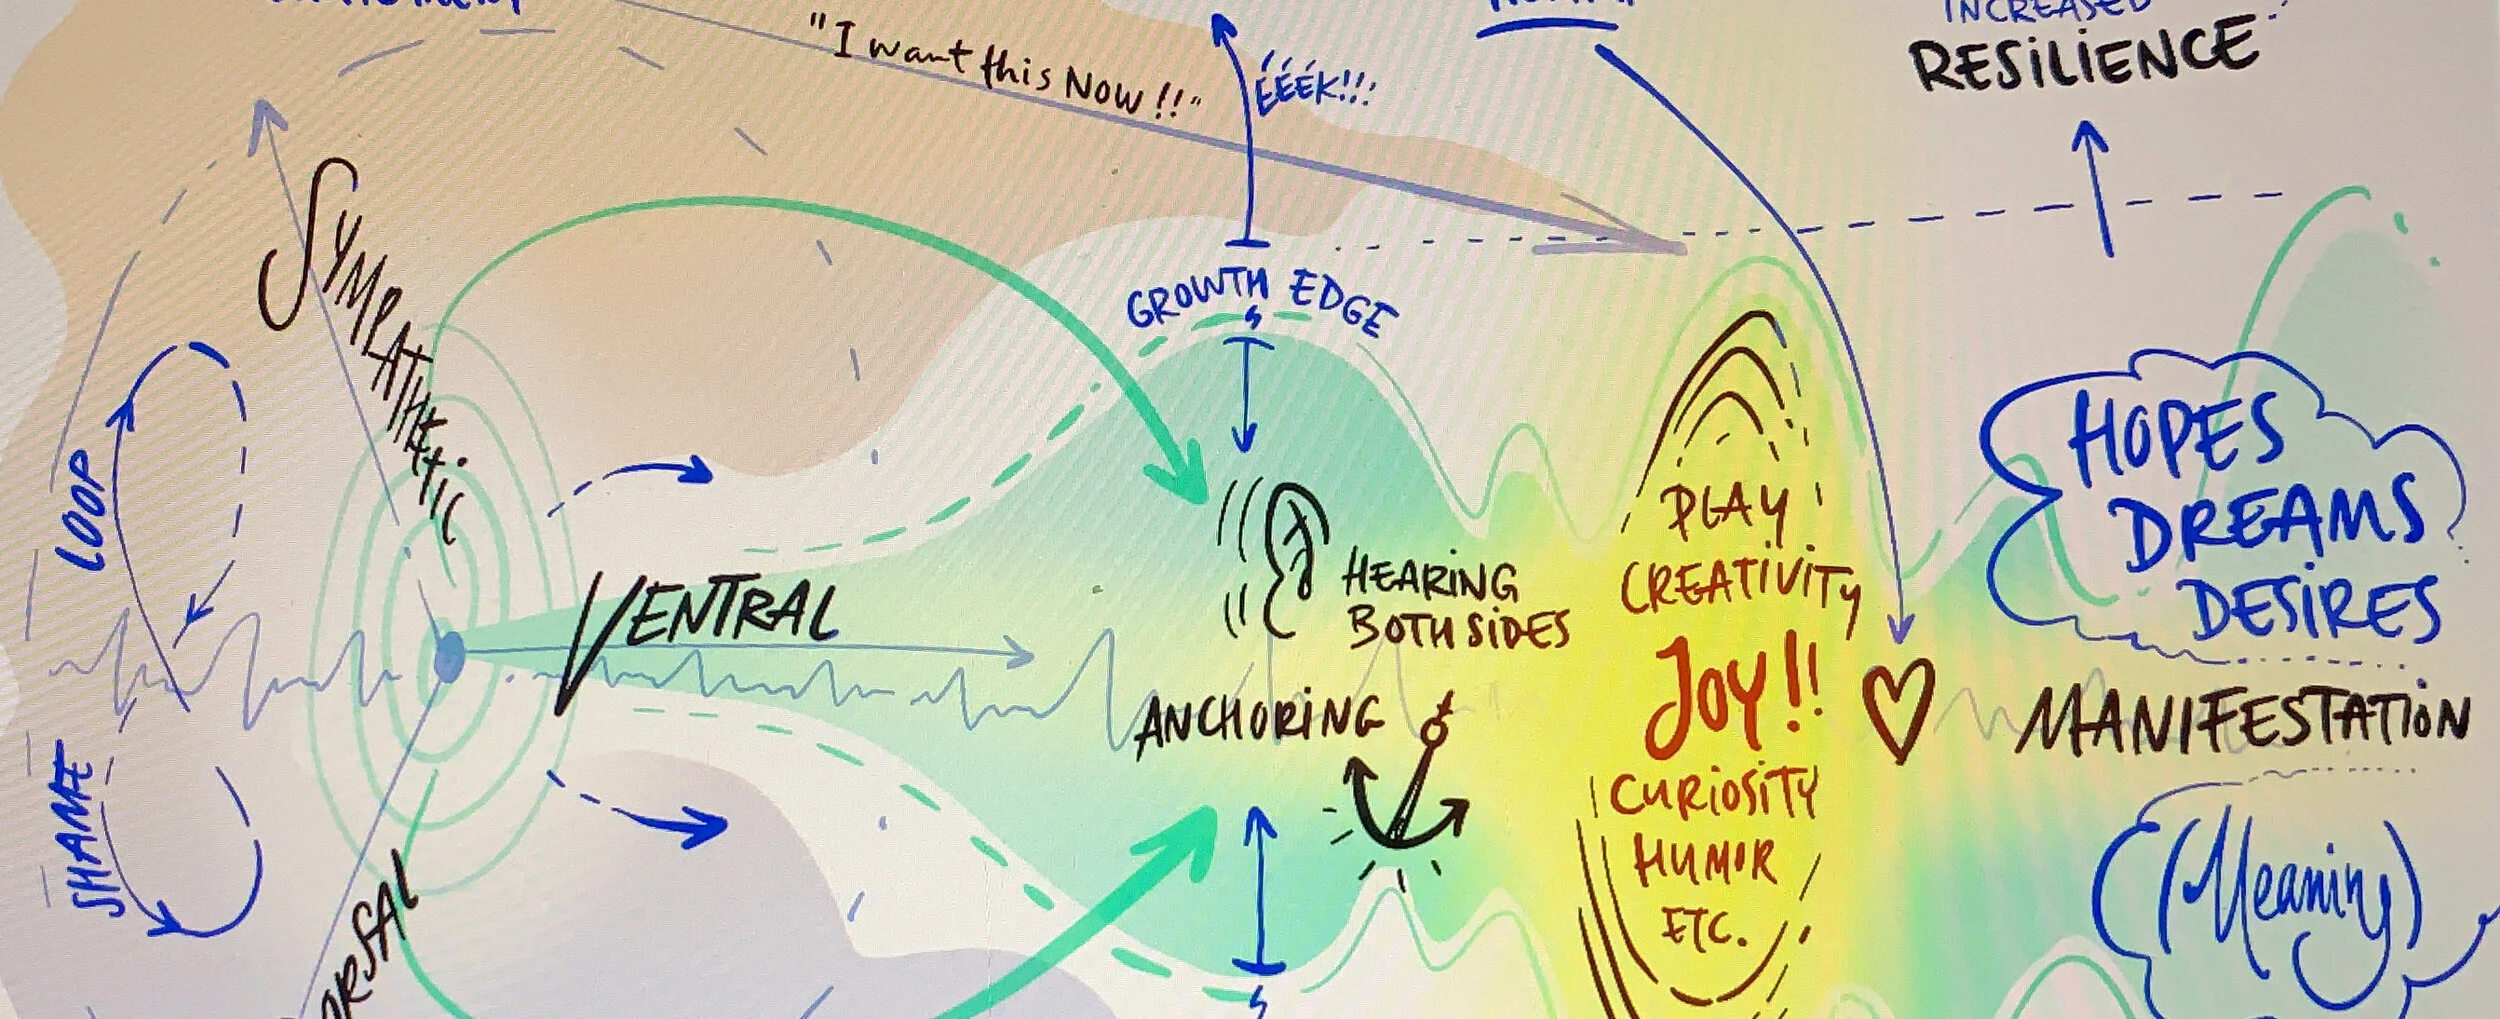 "I want this Now!!"
ÉÉÉK!!!
INCREASED
RESILIENCE
SYMPATHETIC
GROWTH EDGE
LOOP
SHAME
VENTRAL
HEARING
BOTH SIDES
ANCHORING
PLAY
CREATIVITY
JOY!!
CURIOSITY
HUMOR
ETC.
HOPES
DREAMS
DESIRES
MANIFESTATION
(Meaning)